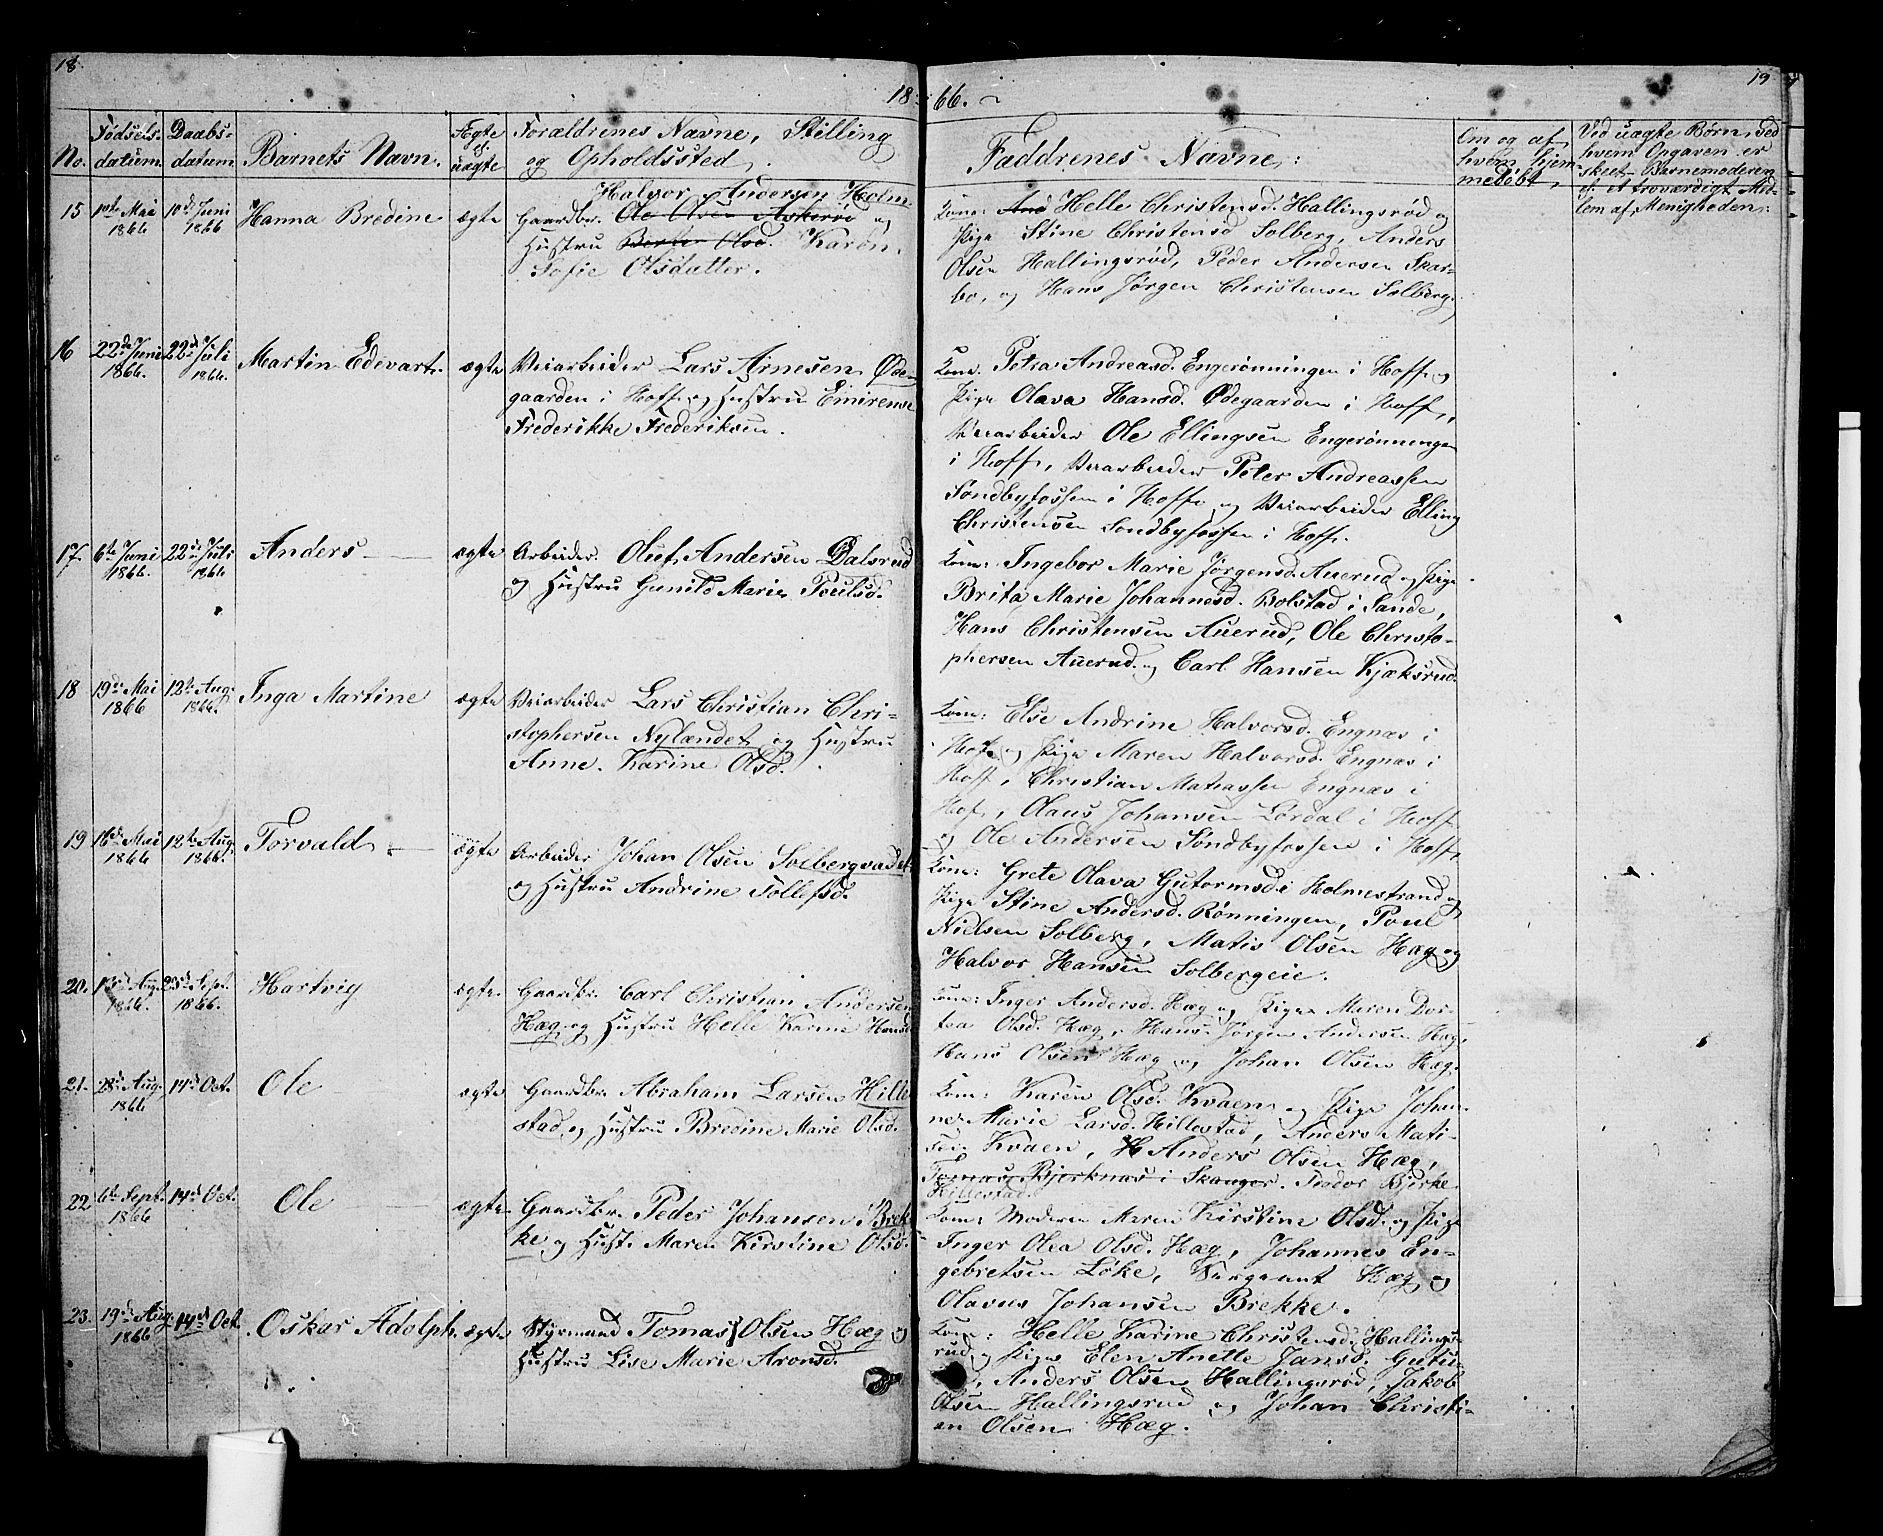 18
19
18
66.
No.
Fødsels-
datum.
Daabs-
datum
Barnets Navn.
Ægte
el.
uægte
Forældrenes Navne, Stilling
og Opholdssted.
Faddrenes Navne:
Om og af
hvem hjem-
medøbt,
Ved uægte Børn, ved
hvem Opgaven er
skeet - Barnemoderen
el. et troværdigt Med-
lem af Menigheden:
15
1ste Mai
1866
10de Juni
1866
Hanna Bredine
ægte
Halvor Andersen Holm
Gaardbr. Ole Olsen Askerød og
Hustru Berthe Olsd. Karen
Sofie Olsdatter.
Kone: And Helle Christensd. Hallingsrød og
Pige Stine Christensd Solberg, Anders
Olsen Hallingsrød, Peder Andersen Skar-
bo, og Hans Jørgen Christensen Solberg.
16
22de Juni
1866.
22de Juli
1866.
Martin Edevart.
ægte
Veiarbeider Lars Arnesen Øde-
gaarden i Hoff og Hustru Emirense
Frederikke Frederiksen.
Kone. Petra Andreasd. Engerønningen i Hoff og
Pige Olava Hansd. Ødegaarden i Hoff,
Veiarbeider Ole Ellingsen Engerønningen
i Hoff, Veiarbeider Peter Andreassen
Søndbyfossen i Hoff og Veiarbeider Elling
Christensen Søndbyfossen i Hoff.
17.
6te Juni
1866.
22de Juli
1866
Anders
ægte
Arbeider Oluf Andersen Dalsrud
og Hustru Gunild Marie Poulsd.
Kone: Ingebor Marie Jørgensd. Auerud og Pige
Brita Marie Johannesd. Bolstad i Sande,
Hans Christensen Auerud, Ole Christo-
phersen Auerud og Carl Hansen Kjæksrud.
18
19de Mai
1866
12te Aug.
1866.
Inga Martine
ægte
Veiarbeider Lars Christian Chri-
stophersen Nylændet og Hustru
Anne Karine Olsd.
Kone: Else Andrine Halvorsd. Engnæs i
Hoff og Pige Maren Halvorsd. Engnæs i
Hoff, Christian Matiassen Engnæs i
Hof, Olaus Johansen Lørdal i Hoff
og Ole Andersen Søndbyfossen i Hoff,
19
16de Mai
1866
12te Aug.
1866.
Torvald
ægte
Arbeider Johan Olsen Solbergvadet
og Hustru Andrine Tollefsd.
Kone: Grete Olava Gutormsd. i Holmestrand og
Pige Stine Andersd. Rønningen, Poul
Nielsen Solberg, Matis Olsen Hæg og
Halvor Hansen Solbergeie.
20.
Aug.
1866.
Sept.
1866.
Hartvig
ægte.
Gaardbr. Carl Christian Andersen
Hæg og Hustru Helle Karine Hansd
Kone: Inger Andersd. Hæg og Pige Maren Dor-
tea Olsd. Hæg, Hans Jørgen Andersen Hæg,
Hans Olsen Hæg og Johan Olsen Hæg.
21.
28de Aug.
1866
14de Oct.
Ole
ægte
Gaardbr. Abraham Larsen Hille-
stad og Hustru Bredine Marie Olsd.
Kone: Karen Olsd. Kvaen og Pige Johan-
ne Marie Larsd. Hillestad, Anders Mati-
sen Kvaen, H Anders Olsen Hæg,
Tomas Bjerknas i Skanger. Teodor Bjerke
Hillestad.
22
6te Sept.
1866
14de Oct.
Ole
ægte
Gaardbr. Peder Johansen Brek-
ke og Hust. Maren Kirstine Olsd.
Kone: Moderen Maren Kirstine Olsd. og Pige
Inger Olea Olsd. Hæg, Johannes En-
gebretsen Løke, Sergeant Hæg og
Olavus Johansen Brekke.
23.
19de Aug.
1866
14de Oct.
Oskar Adolph.
ægte
Styrmand Tomas Olsen Hæg og
Hustru Lise Marie Aronsd.
Kone: Helle Karine Christensd. Hallings-
rud og Pige Elen Anette Jansd. Gutu-
Anders Olsen Hallingsrød, Jakob
Olsen Hallingsrud og Johan Christi-
an Olsen Hæg.